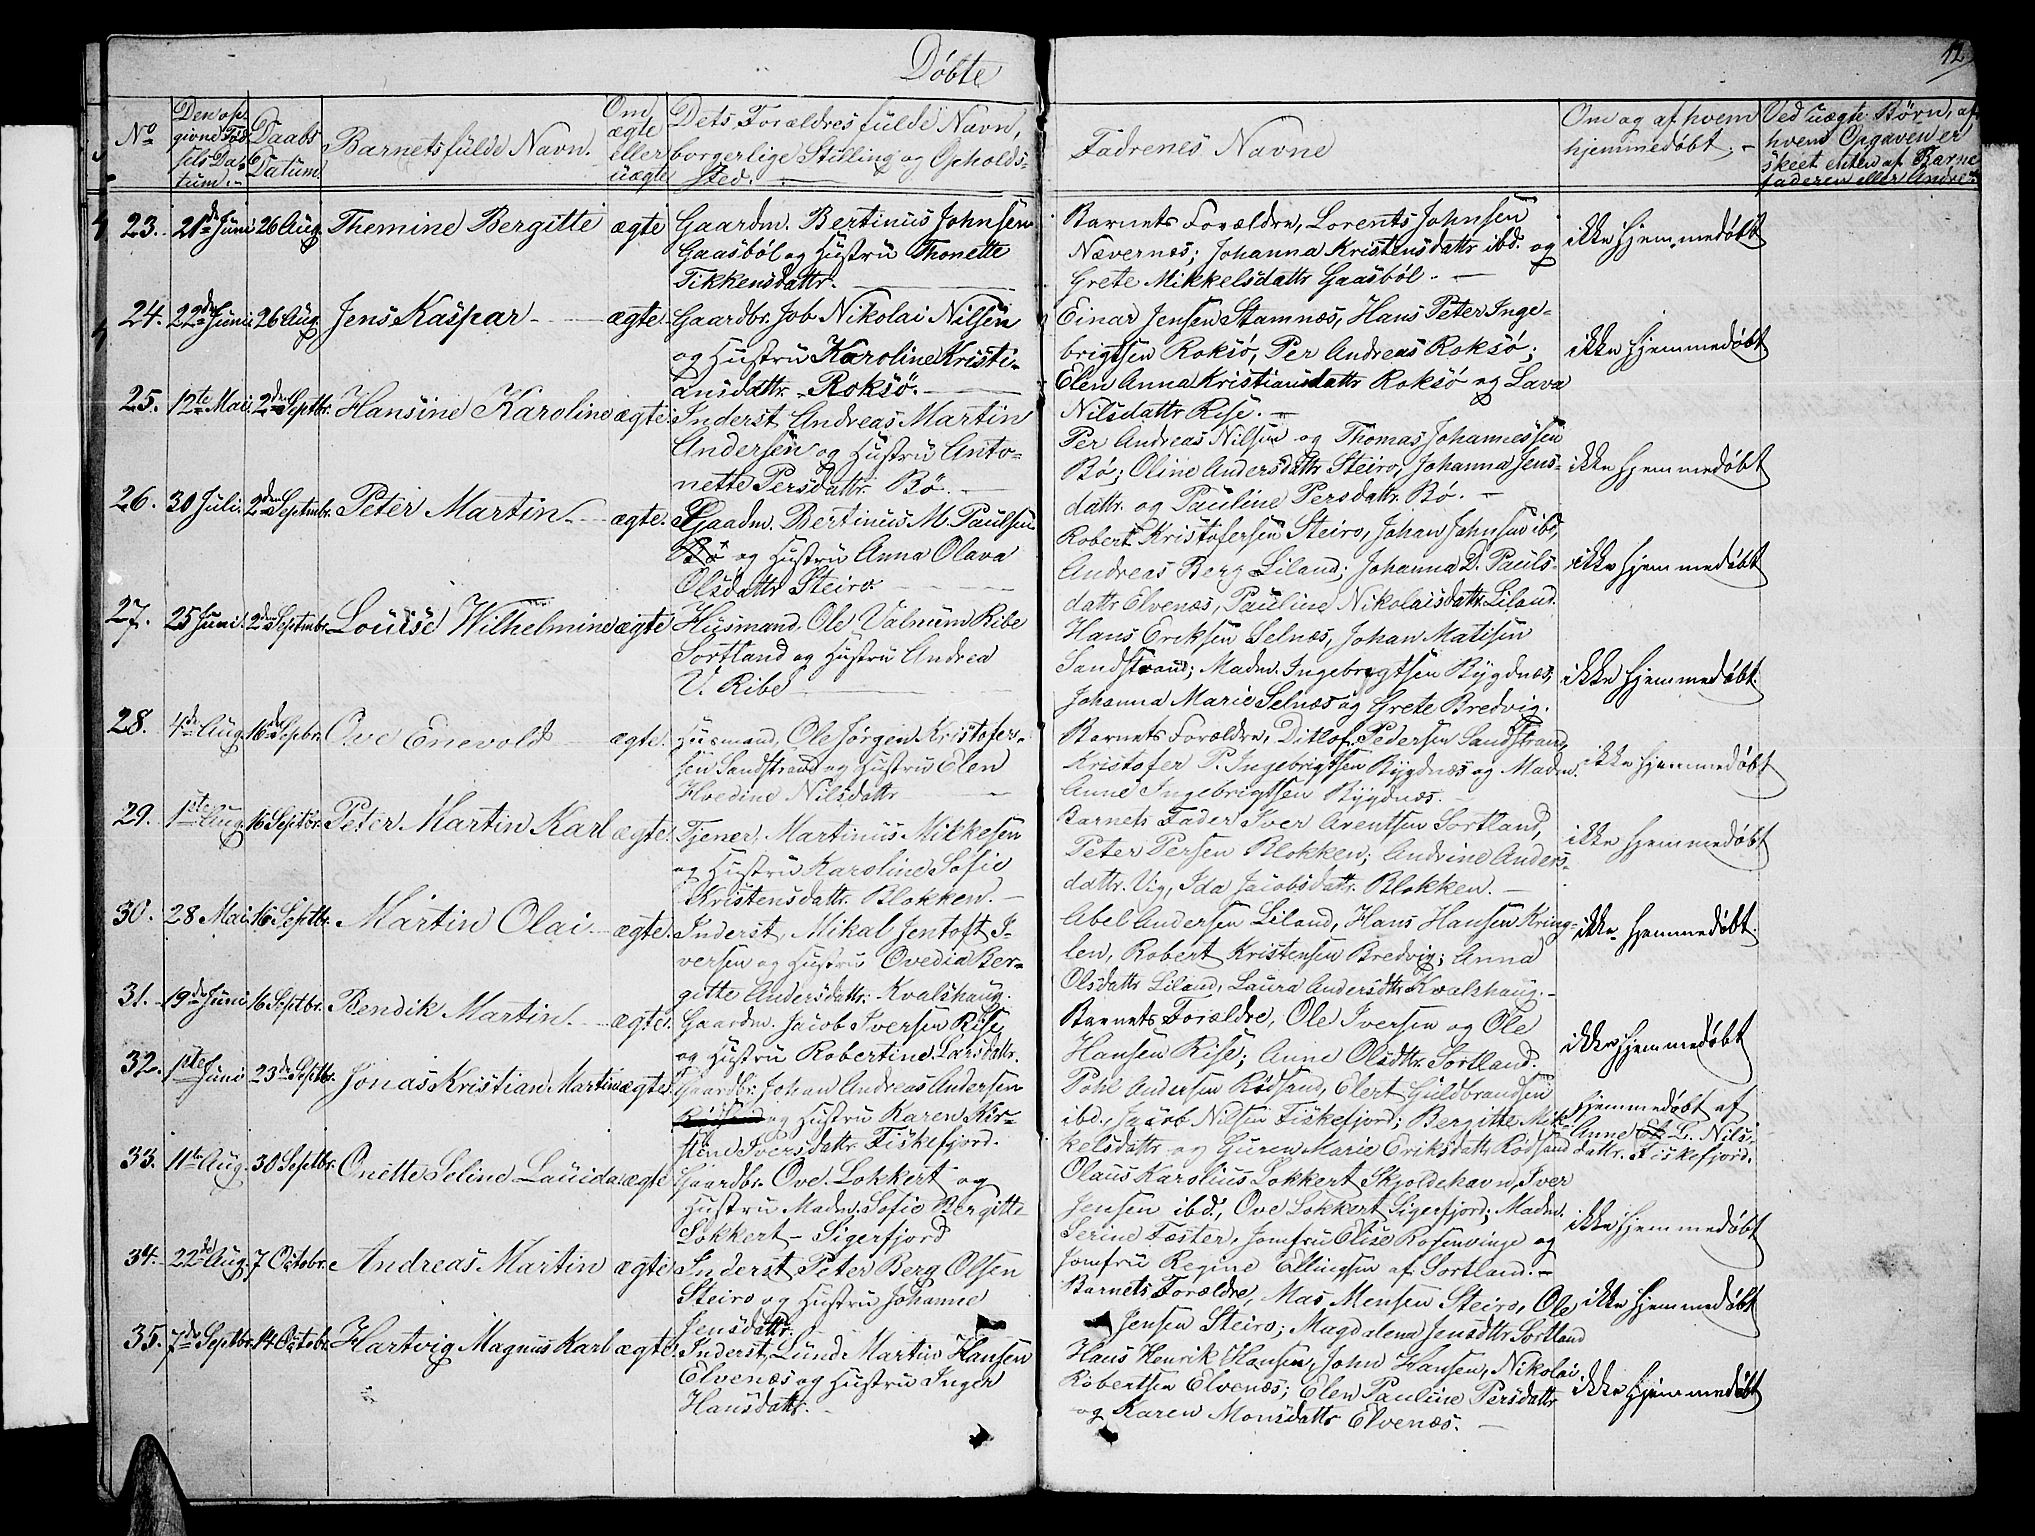 Døbte
12
No
Den opgivne Fødselsdatum.
Daabs Datum
Barnets fulde Navn.
Om ægte eller uægte
Dets Forældres fulde Navn, borgerlige Stilling og Opholds-Sted.
Fadrenes Navne
Om og af hvem hjemmedøbt.
Ved uægte Børn, af hvem Opgaven er skeet enten af Barnefaderen eller Andre.
23. 21de Juni 26 Aug. Themine Bergitte ægte
Gaardm. Bertinus Johnsen
Gaasbøl og Hustru Thonette
Tikkensdattr.
Barnets Forældre, Lorents Johnsen
Nævernes; Johanna Kristensdattr ibd. og
Grete Mikkelsdattr Gaasbøl.
ikke hjemmedøbt
24. 22de Juni 26 Aug. Jens Kaspar ægte
Gaardbr. Job Nikolai Nilsen
og Hustru Karoline Kristi-
ansdattr. Roksø.
Einar Jensen Stamnæs, Hans Peter Inge-
brigtsen Roksø, Per Andreas Roksø;
Elen Anna Kristiansdattr Roksø og Lava
Nilsdattr Rise.
ikke hjemmedøbt
25. 12te Mai. 2den Septbr. Hansine Karoline ægte.
Inderst Andreas Martin
Andersen og Hustru Anto-
nette Persdattr. Bø.
Per Andreas Nilsen og Thomas Johannessen
Bø; Oline Andersdattr Steiro, Johanna Jens-
dattr. og Pauline Persdattr. Bø.
ikke hjemmedøbt
26. 30 Juli. 2den Septembr. Peter Martin. ægte.
Gaadm. Bertinus M. Paulsen
Bø og Hustru Anna Olava
Olsdattr Steiro.
Robert Kristofersen Steiro, Johan Johnsen ibd,
Andreas Berg Liland; Johanna D. Pauls-
dattr Elvenæs, Pauline Nikolaisdattr. Liland.
ikke hjemmedøbt
27. 25 Juni. 2den Septembr. Louise Wilhelmine ægte
Husmand, Ole Valnum Ribe
Sortland og Hustru Andrea
V. Ribe
Hans Eriksen Selnæs, Johan Matisen
Sandstrand; Madm. Ingebrigtsen Bygdnæs,
Johanna Marie Selnæs og Grete Bredvig.
ikke hjemmedøbt.
28. 4de Aug. 16de Sepbr. Ove Enevold ægte.
Husmand, Ole Jørgen Kristofer-
sen Sandstrand og Hustru Elen
Hvedine Nilsdattr
Barnets Forældre, Ditlof Pedersen Sandstrand,
Kristofer P. Ingebrigtsen Bygdnæs og Madm.
Anne Ingebrigtsen Bygdnæs.
ikke hjemmedøbt
29. 1ste Aug. 16 Septbr. Peter Martin Karl ægte.
Tjener, Martinus Mikkesen
og Hustru Karoline Sofie
Kristensdattr. Blokken.
Barnets Fader Iver Arentsen Sortland,
Peter Persen Blokken; Andrine Anders-
dattr. Vig, Ida Jacobsdattr. Blokken.
ikke hjemmedøbt
30. 28 Mai. 16 Septbr. Martin Olai ægte.
Inderst, Mikal Jentoft I-
versen og Hustru Ovedia Ber-
gitte Andersdattr. Kvalshaug.
Abel Andersen Liland, Hans Hansen Kring-
len, Robert Kristensen Bredvig; Anna
Olsdattr Liland, Laura Andersdttr Kvalshaug.
ikke hjemmedøbt.
31. 19de Juni 16 Septbr. Bendik Martin. ægte.
Gaardm. Jacob Iversen Rise,
og Hustru Robertine Larsdattr.
Barnets Forældre, Ole Iversen og Ole
Hansen Rise; Anne Olsdttr. Sortland.
ikke hjemmedøbt
32. 1ste Juni 23de Septbr. Jonas Kristian Martin ægte.
Gaardbr. Johan Andreas Andersen
Rødsand og Hustru Karen Kir-
stine Iversdattr. Fiskefjord.
Pohl Andersen Rødsand, Elert Guldbrandsen
ibd. Jacob Nilsen Fiskefjord; Bergitte Mik-
kelsdattr og Guren Marie Eriksdattr Rødsand
hjemmedøbt af
Anne L. Nils-
dattr. Fiskefjord.
33. 11te Aug. 30 Septbr. Onette Seline Lauida ægte
Gaardbr. Ove Lokkert og
Hustru Madm. Sofie Bergitte
Lokkert - Sigerfjord
Olaus Karolius Lokkert Skjoldehavn, Iver
Jensen ibd., Ove Lokkert Sigerfjord; Madm.
Serine Fæster, Jomfru Elise Rosenvinge og
Jomfru Regine Ellingsen af Sortland.
ikke hjemmedøbt
34. 22de Aug. 7 Octobr. Andreas Martin ægte
Inderst Peter Berg Olsen
Steiro og Hustru Johanne
Jensdattr.
Barnets Forældre, Mas Monsen Steiro, Ole
Jensen Steiro; Magdalena Jensdttr Sortland
ikke hjemmedøbt
35. 7de Septbr. 14 Octobr. Hartvig Magnus Karl ægte
Inderst, Lund Martin Hansen
Elvenæs og Hustru Inger
Hansdattr.
Hans Henrik Hansen, John Hansen, Nikolai
Robertsen Elvenæs; Elen Pauline Persdattr
og Karen Monsdattr Elvenæs.
ikke hjemmedøbt